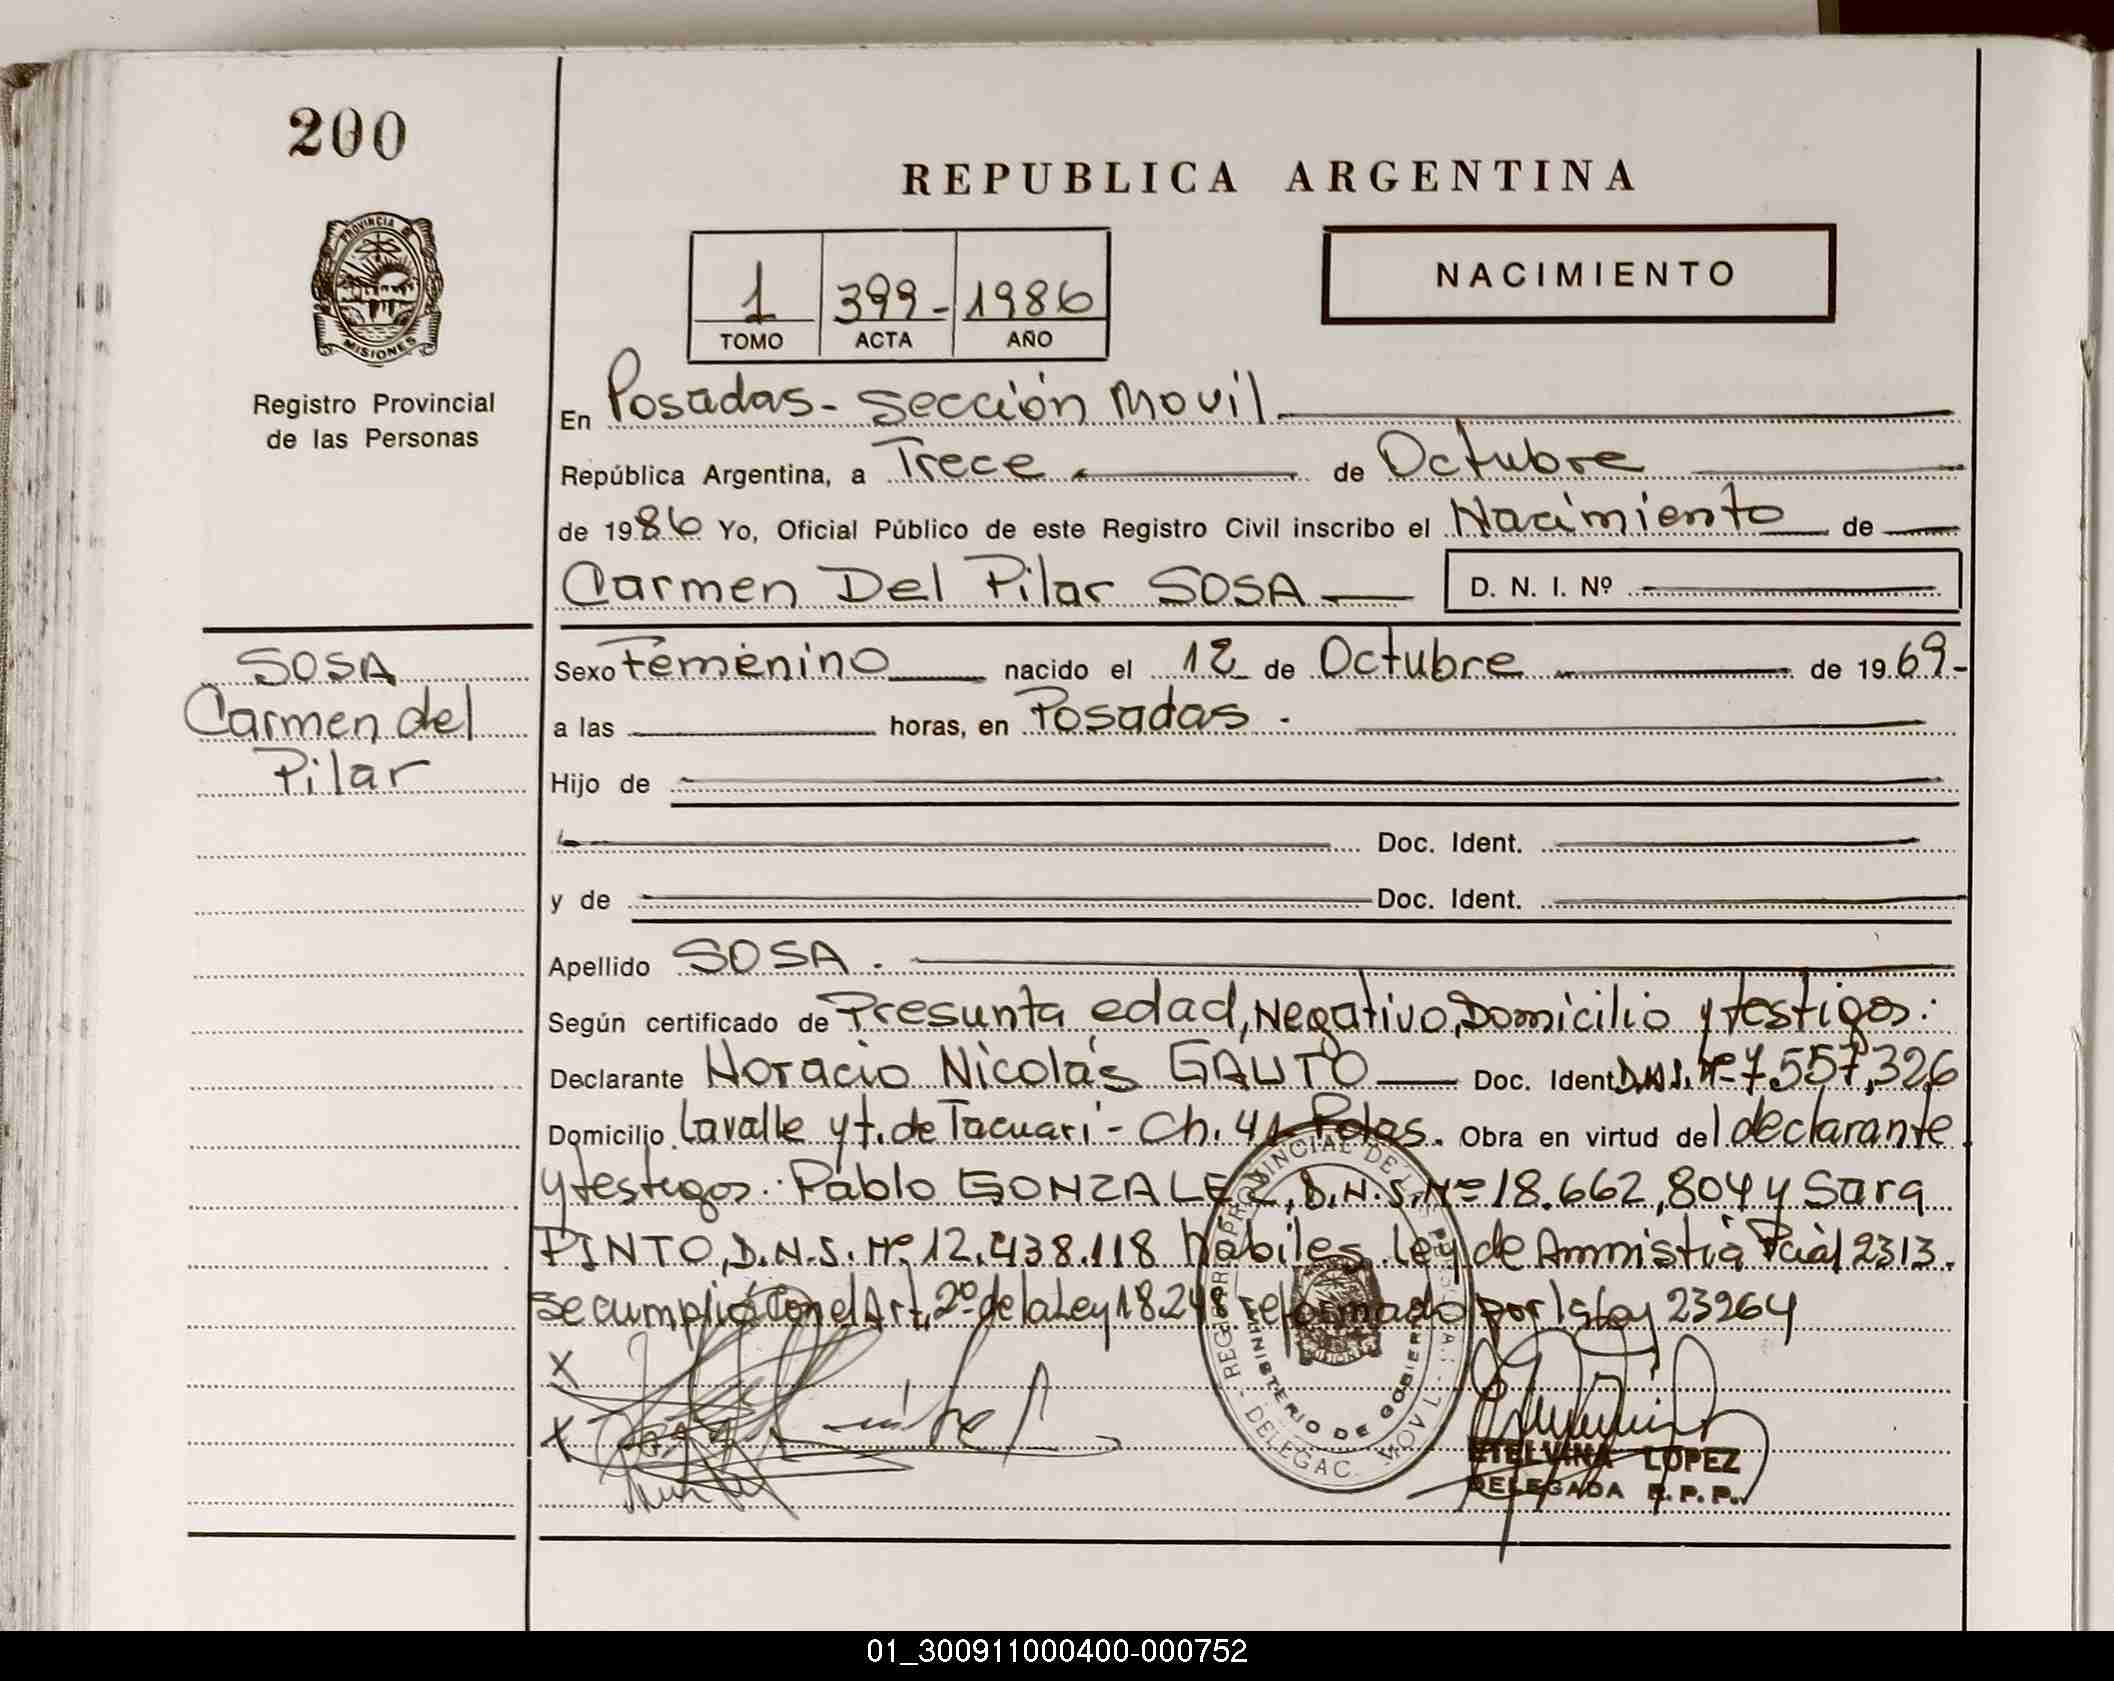 200
REPUBLICA ARGENTINA
PROVINCIA DE
MISIONES
Registro Provincial
de las Personas
1 399- 1986
TOMO ACTA AÑO
NACIMIENTO
En Posadas - Sección Movil
República Argentina, a Trece de Octubre
de 1986 Yo, Oficial Público de este Registro Civil inscribo el Nacimiento de
Carmen Del Pilar SOSA D. N. I. Nº
SOSA
Carmen del
Pilar
Sexo Femenino nacido el 12 de Octubre de 1969-
a las horas, en Posadas.
Hijo de
Doc. Ident.
y de Doc. Ident.
Apellido SOSA.
Según certificado de Presunta edad, Negativo, Domicilio y testigos:
Declarante Horacio Nicolás GAUTO Doc. Ident D.N.I. Nº 7.557,326
Domicilio Lavalle y t. de Tacuari - Ch. 41 Pdas. Obra en virtud del declarante
y testigos: Pablo GONZALEZ, D.N.I. Nº 18.662,804 y Sara
PINTO, D.N.I. Nº 12.438.118 habiles. Ley de Amnistia Pcial 2313.
se cumplió con el Art. 2º de la Ley 18.248 reformado por la Ley 23264
X
X
REGISTRO PROVINCIAL DE LAS PERSONAS
MINISTERIO DE GOBIERNO
DELEGAC. MOVIL
MISIONES
ETELVINA LOPEZ
DELEGADA R.P.P.
01_300911000400-000752